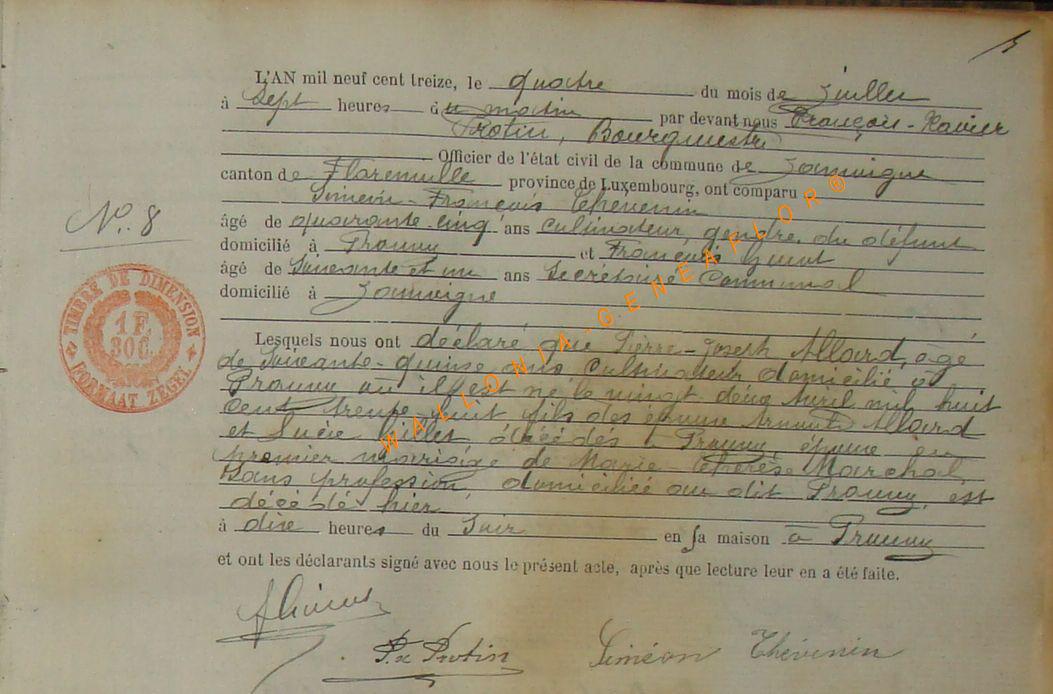 5
L'AN mil neuf cent treize, le quatre du mois de juillet
à Sept heures du matin par devant nous François-Xavier
Protin, Bourgmestre
Officier de l'état civil de la commune de Jamoigne
canton de Florenville province de Luxembourg, ont comparu
Siméon-François Thévenin
N°. 8
âgé de quarante-cinq ans Cultivateur, gendre du défunt
domicilié à Prouvy et François
âgé de Soixante et un ans Secrétaire Communal
domicilié à Jamoigne
TIMBRE DE DIMENSION
1 F.
30 C.
FORMAAT ZEGEL
Lesquels nous ont déclaré que Pierre-Joseph Allard, âgé
de Soixante-quinze ans Cultivateur domicilié à
Prouvy où il est né le vingt deux Avril mil huit
cent trente-huit fils des époux Arnould Allard
et Lucie Gillet, décédés à Prouvy, époux en
premier mariage de Marie-Thérèse Marchal,
Sans profession, domiciliée au dit Prouvy, est
décédé hier
à dix heures du Soir en sa maison à Prouvy
et ont les déclarants signé avec nous le présent acte, après que lecture leur en a été faite.
Fx Protin Siméon Thévenin
WALLONIA-GENEAFLOR®